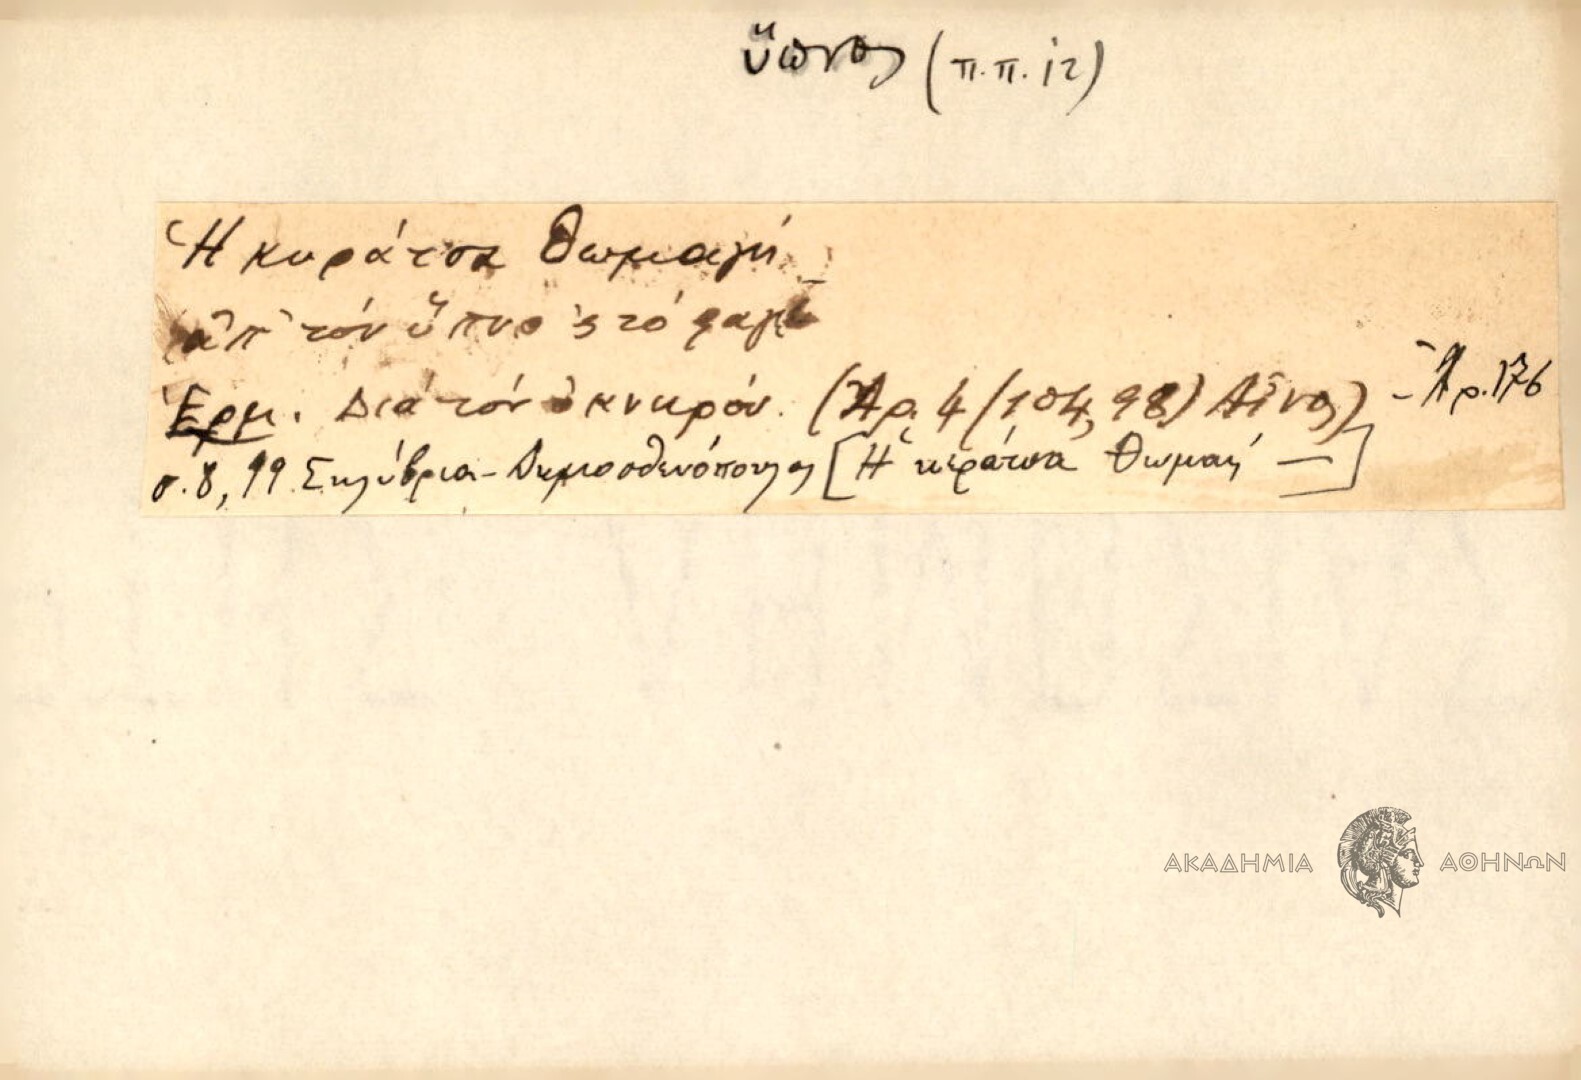 ὕπνος (π.π. 12)
Ἡ κυράτσα Θωμαγή
ἀπ' τόν ὕπνο 'ς τό φαγί
Ἑρμ. Διά τόν ὀκνηρόν. (Ἀρ. 4 (104, 98) Αἶνος) - Ἀρ. 176
σ. 8, 99 Σηλύβρια - Δημοσθενόπουλος [Ἡ κεράτσα Θωμαή —]
ΑΚΑΔΗΜΙΑ ΑΘΗΝΩΝ